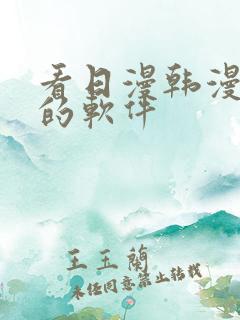 看日漫韩漫
的软件
王玉蘭
未经同意禁止转载